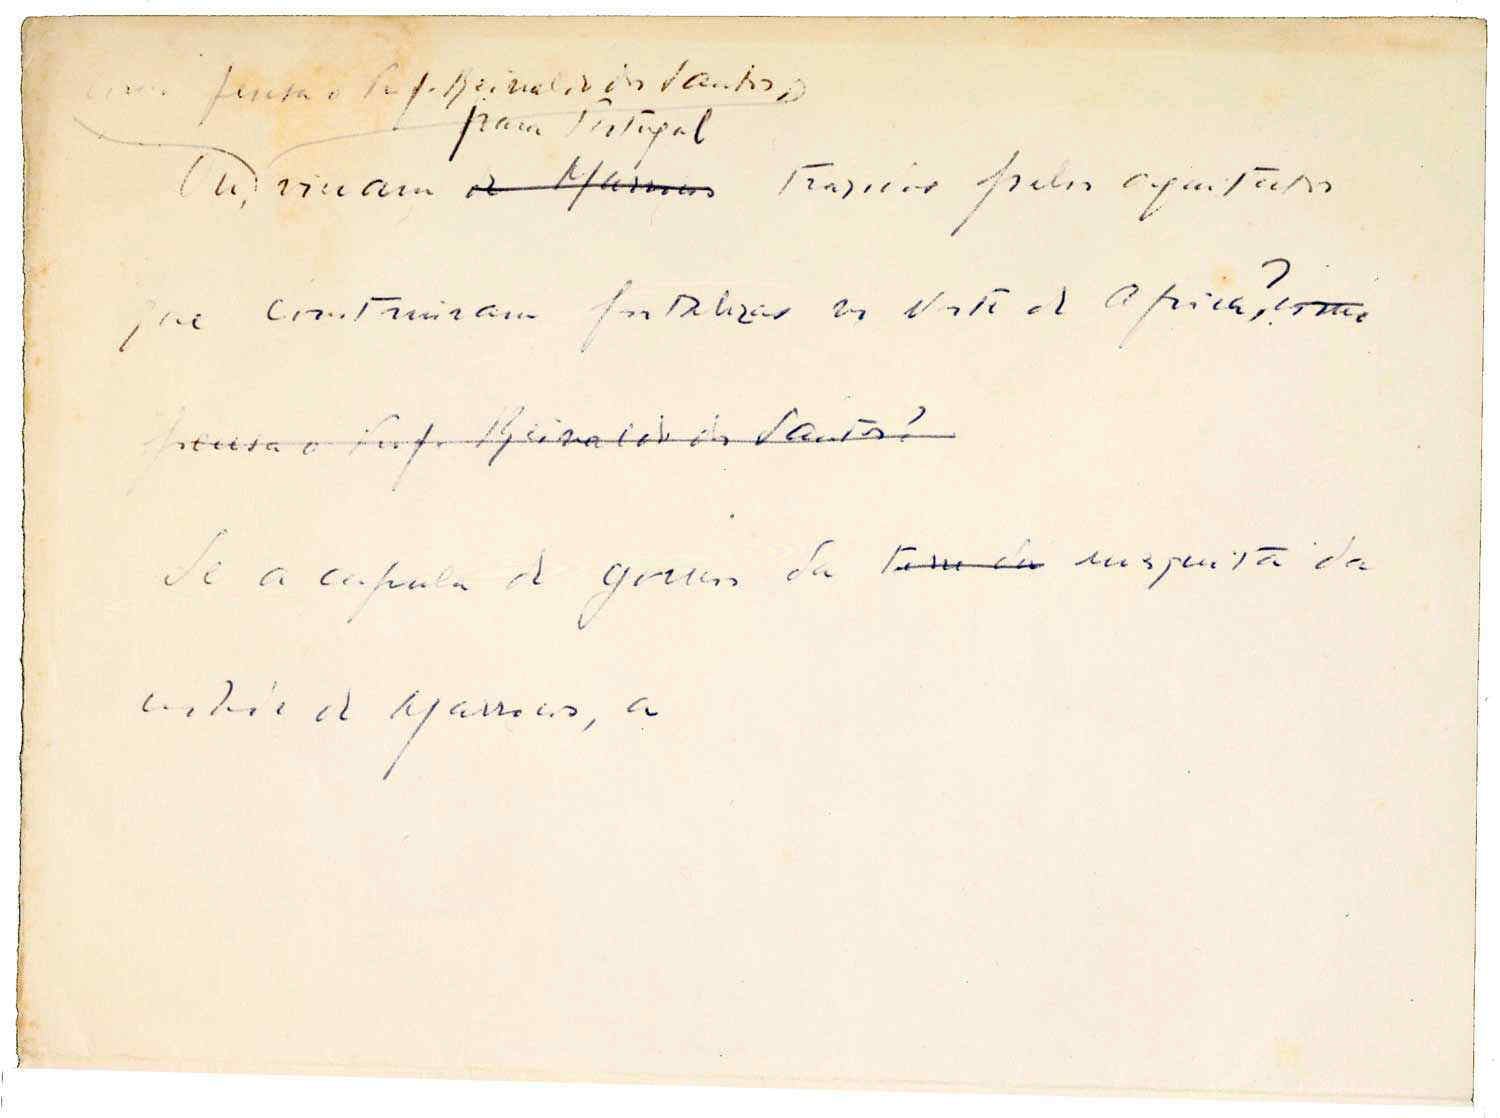 como pensa o Prof. Reinaldo dos Santos,
para Portugal
Ou, vieram de Marrocos trazidos pelos arquitectos
que construiram fortalezas no Norte de Africa?, como
pensa o Prof. Reinaldo dos Santos?
Se a cupula de gomos da torre da mesquita da
de Marrocos, a